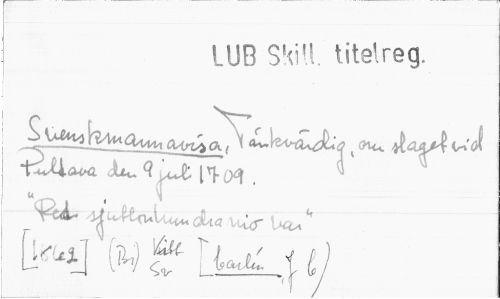 LUB Skill. titelreg.
Svenskmannavisa, Tänkvärdig, om slaget vid
Pultava den 9 juli 1709.
"Red sjuttonhundranio var"
(Br) Sv [Carlén, J G)